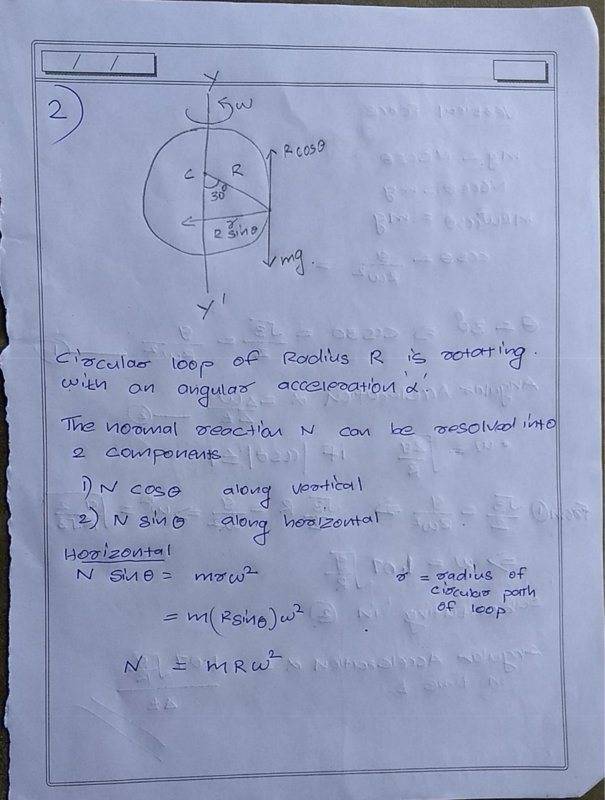 / /
2)
Y
ω
R cosθ
C R
30°
r
R sinθ
mg.
Y'
Circular loop of Radius R is rotating.
with an angular acceleration 'α'.
The normal reaction N can be resolved into
2 components
1) N cosθ along vertical
2) N sinθ along horizontal
Horizontal
N sinθ = mrω²
r = radius of
circular path
of loop
= m(Rsinθ)ω²
N = mRω²